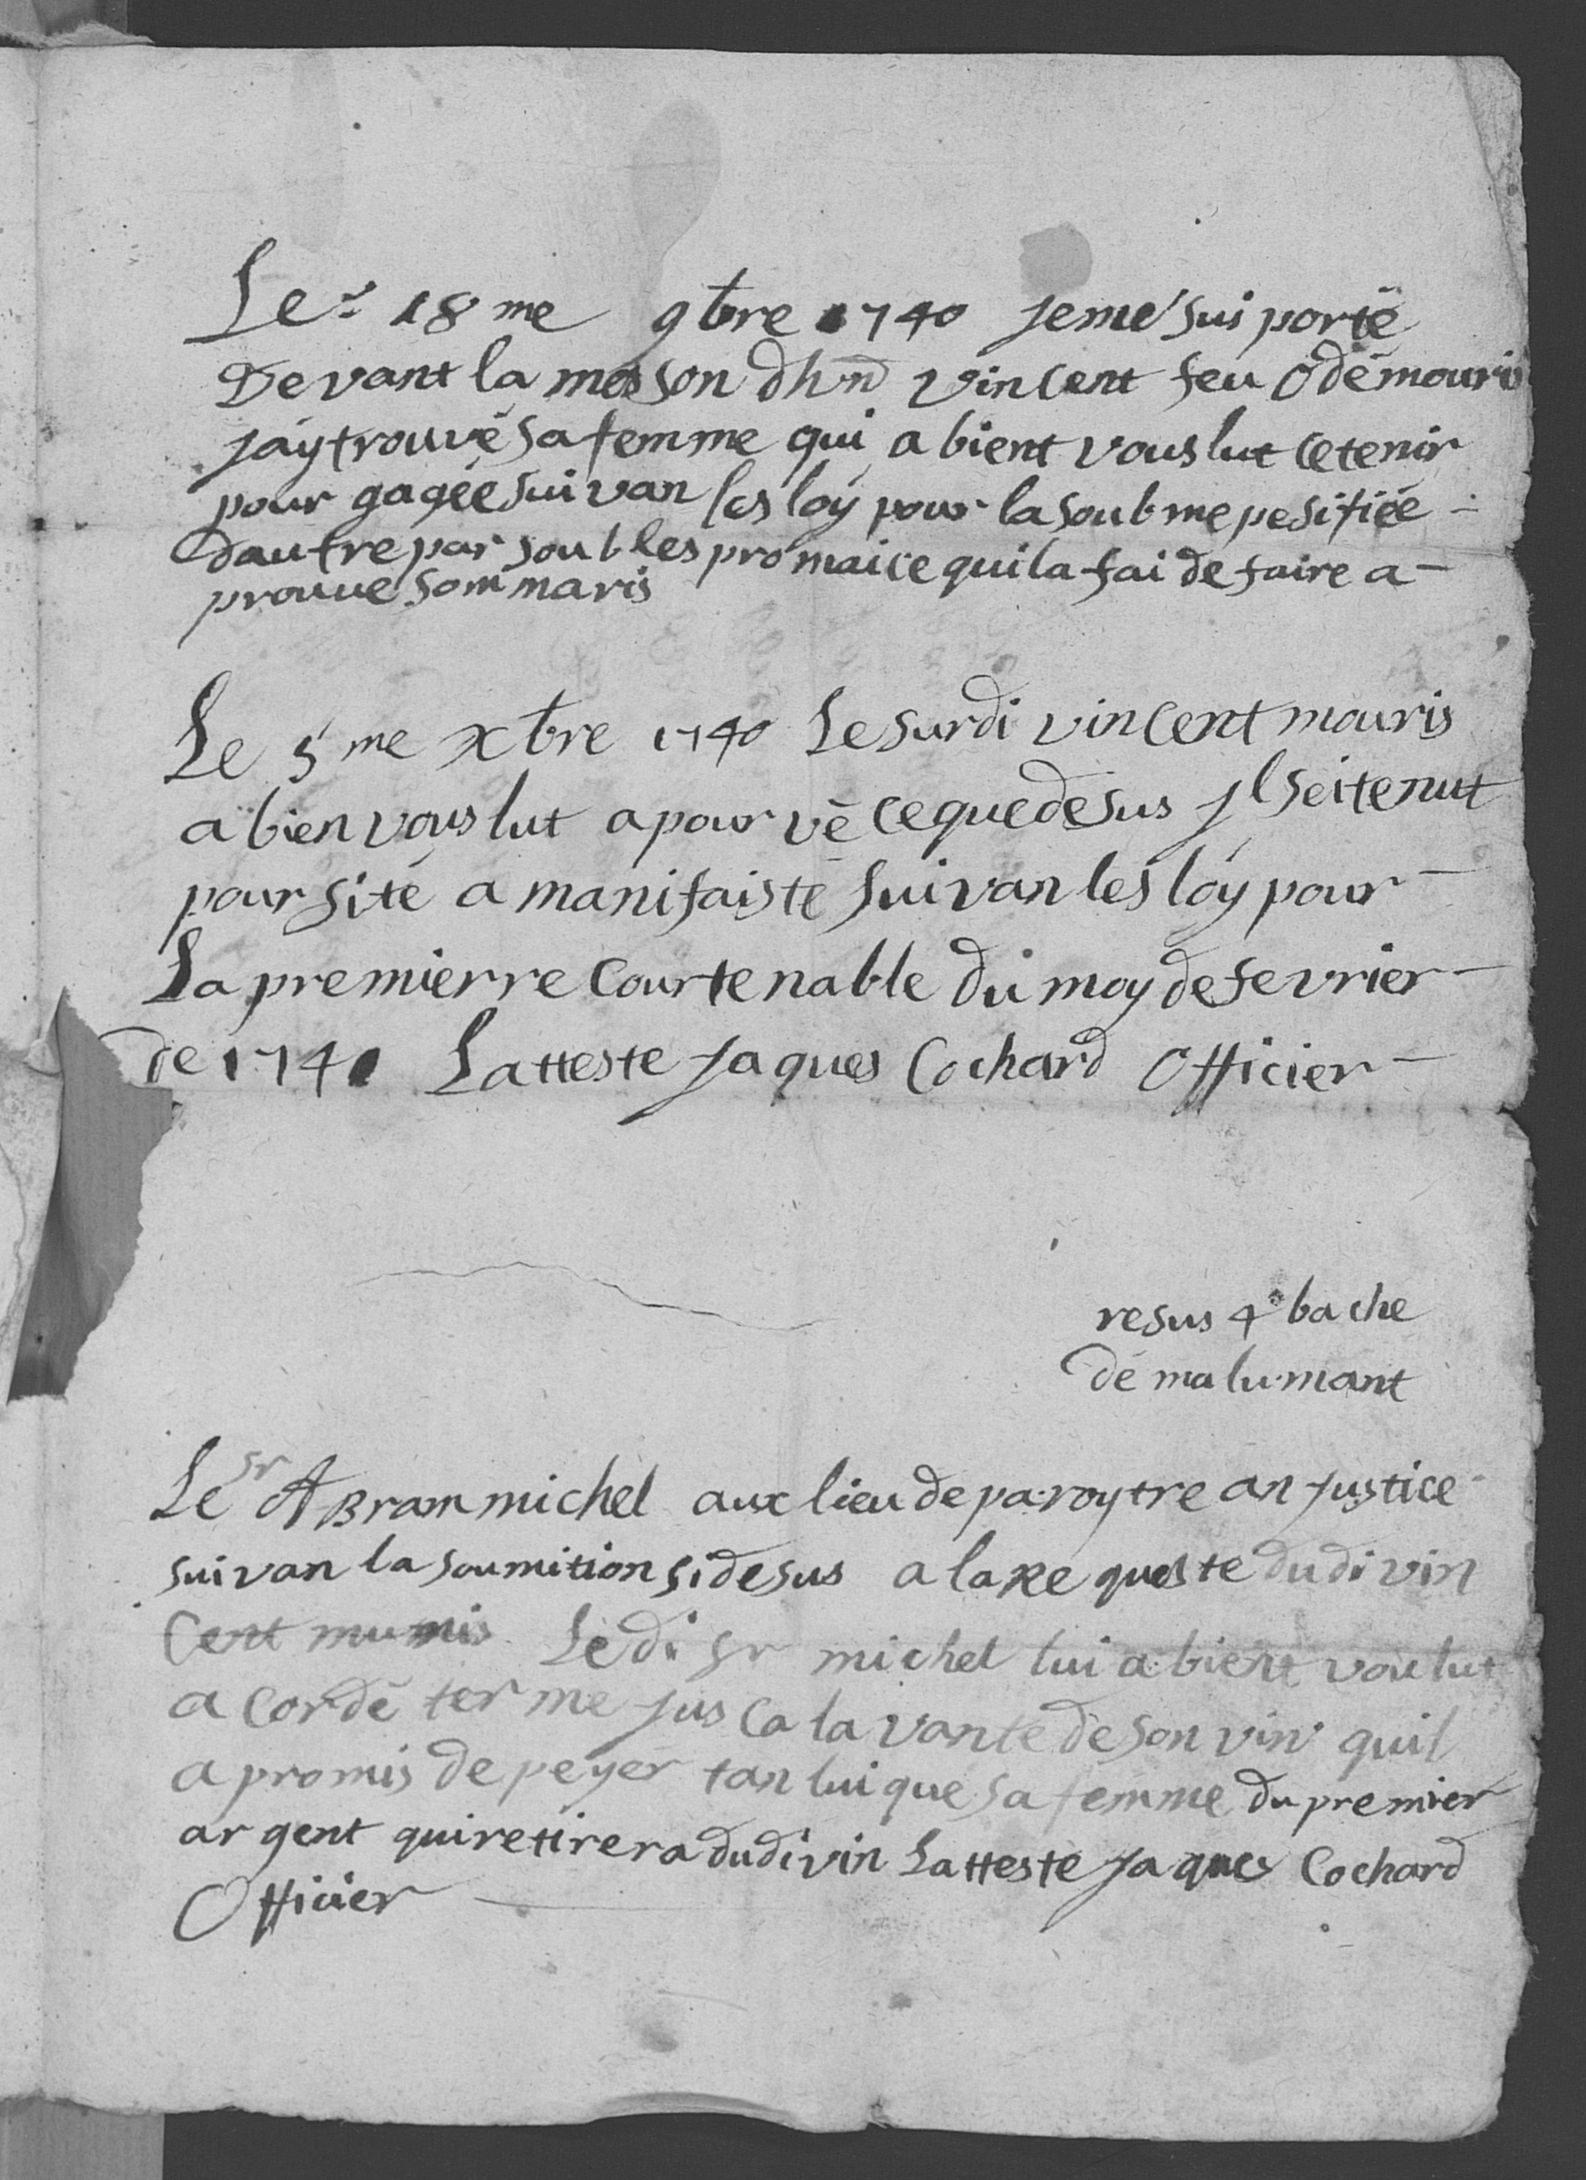 Le 18me 9bre 1740 jeme sui porté
Devant la moison dhnd vincent feu Odémouris
jáy trouvé sa femme qui a bient vouslut cetenir
pour gagée suivan les loÿ pour la soub me pesifiée
dautre par soub les promaice quila fai de faire a-
prouve som maris
Le 5me xbre 1740 Le surdi vincent mouris
a bien vous lut apourvé ceque desus jl seitenut
pour sité a manifaisté suivan les lóy pour
La premierre Courtenable du moy defevrier
de 1741 Latteste jaques Cochard Officier
resus 4 bache
dé malumant
Le sr ABram michel aux lieu de paroytre an justice
suivan la soumition sidesus a la Requeste dudi vin
Cent mumis Le di sr michel lui a bient voulut
a Cordé terme jus Ca la vante de son vin quil
a promis de peyer tan lui que sa femme du premier
argent quiretirera dudi vin Latteste jaques Cochard
Officier